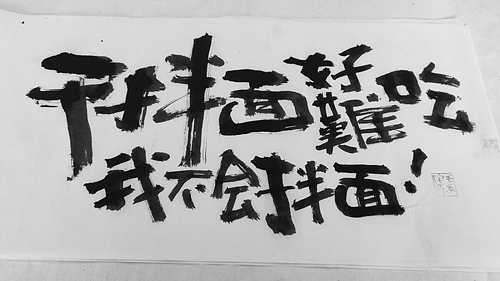 干拌面好難吃
我不会拌面！